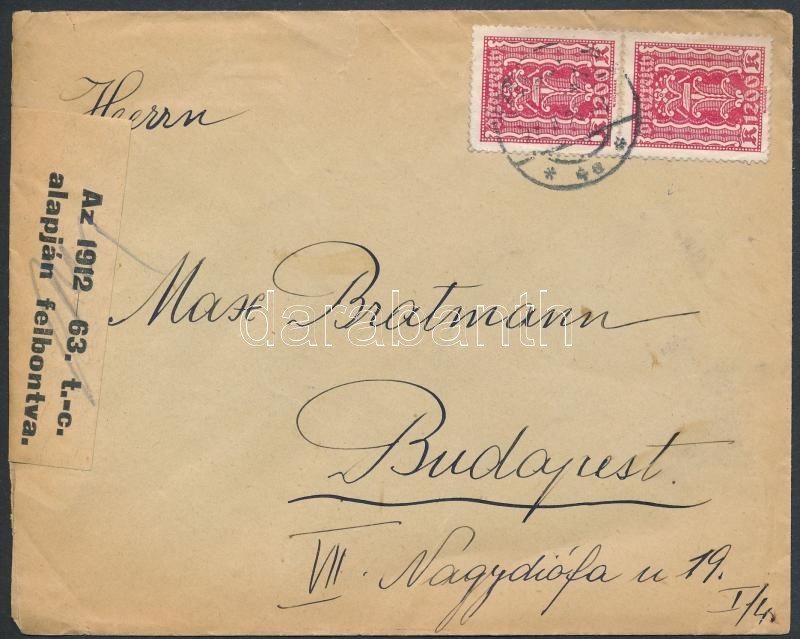 Herrn
Max Bratmann
Budapest.
VII. Nagydiófa u 19.
I/4.
Az 1912–63. t.-c.
alapján felbontva.
1200 K
K 1200 K
darabanth